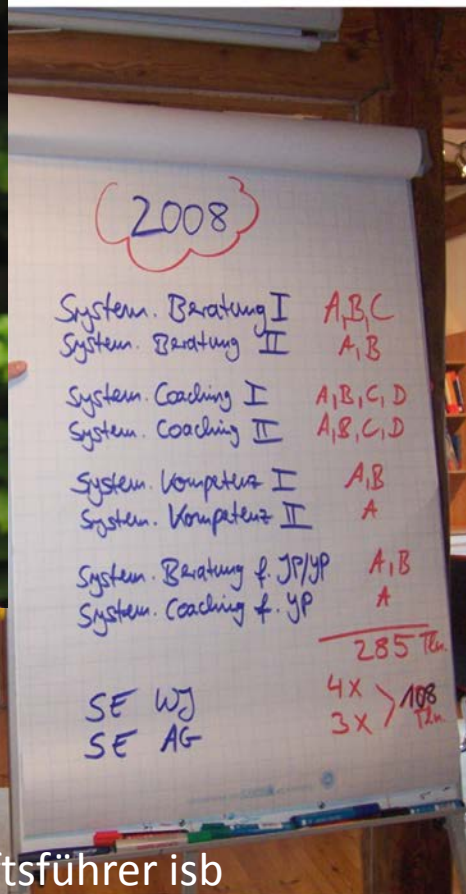 2008
System. Beratung I A,B,C
System. Beratung II A,B
System. Coaching I A,B,C,D
System. Coaching II A,B,C,D
System. Kompetenz I A,B
System. Kompetenz II A
System. Beratung f. JP/YP A,B
System. Coaching f. YP A
285 Tln.
SE WJ 4x
SE AG 3x
108 Tln.
ftsführer isb